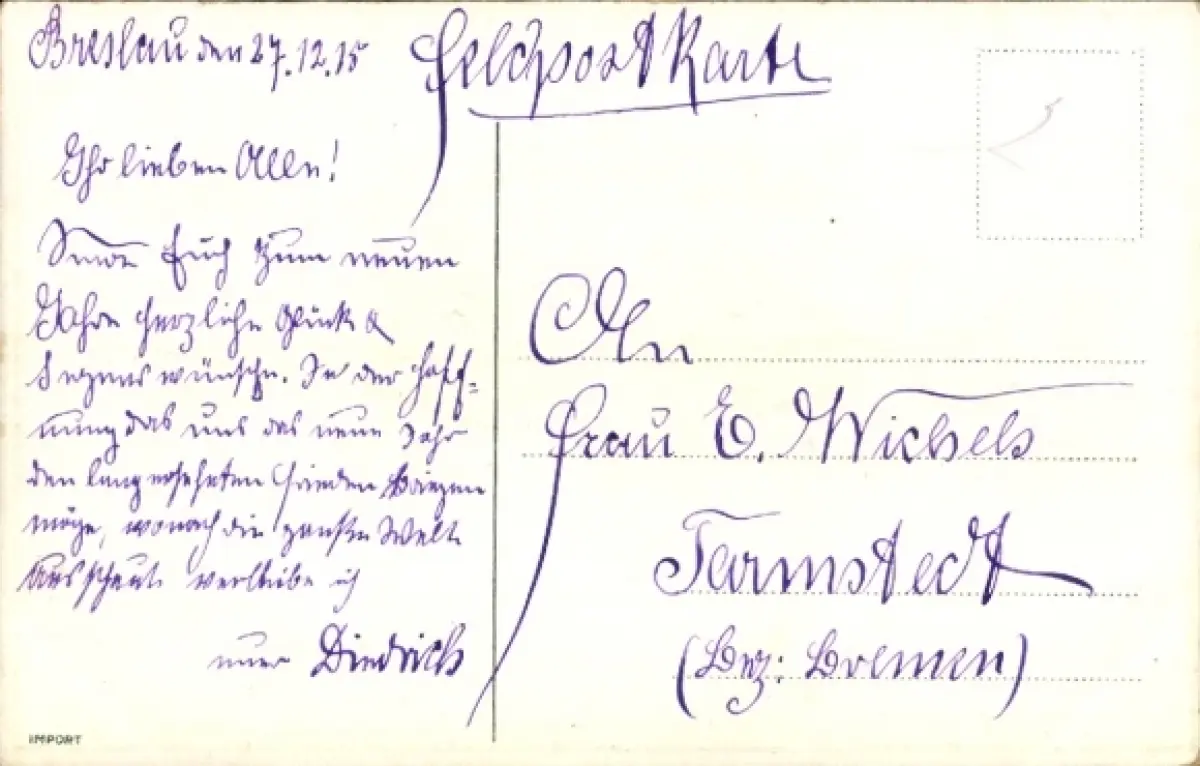 Breslau den 27.12.15
Feldpostkarte
Ihr lieben Allen!
Euch zum neuen
Jahre herzliche Glück &
Segenswünsche. In der Hoff-
nung das uns das neue Jahr
den lang ersehnten Frieden bringen
möge, wonach die ganße Welt
ausschaut verbleibe ich
Euer Diedrich
An
Frau E. Michels
Tarmstedt
(Bez: Bremen)
IMPORT